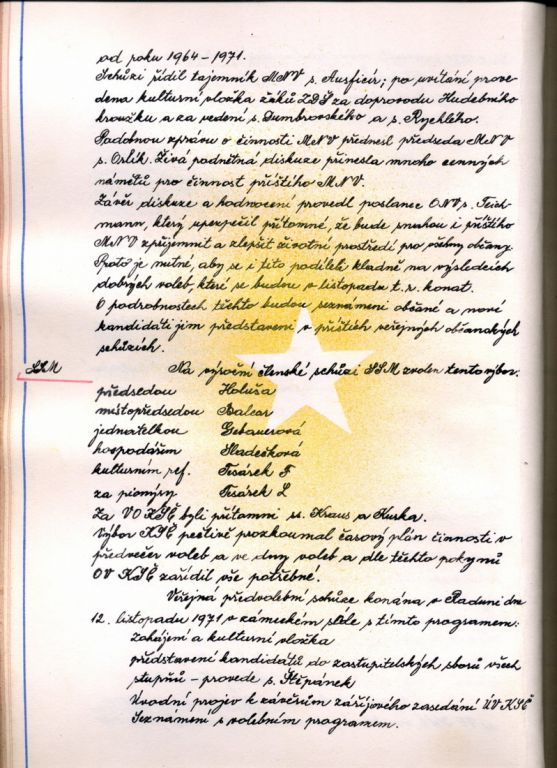 od roku 1964 - 1971.
Schůzi řídil tajemník MNV s. Ausficír; po uvítání prove-
dena kulturní vložka žáků ZDŠ za doprovodu Hudebního
kroužku a za vedení s. Dumbrovského a s. Rychlého.
Podobnou zprávu o činnosti MNV přednesl předseda MNV
s. Orlík. Živá podnětná diskuze přinesla mnoho cenných
námětů pro činnost příštího MNV.
Závěr diskuze a hodnocení provedl poslanec ONV s. Teich-
mann, který upezpečil přítomné, že bude snahou i příštího
MNV zpříjemnit a zlepšit životní prostředí pro všechny občany.
Proto je nutné, aby se i tito podíleli kladně na výsledcích
dobrých voleb, které se budou v listopadu t. r. konat.
O podrobnostech těchto budou seznámeni občané a nové
kandidáti jim představeni v příštích veřejných občanských
schůzích.
SSM Na výroční členské schůzi SSM zvolen tento výbor:
předsedou Holuša
místopředsedou Balcar
jednatelkou Gebauerová
hospodářem Sladečková
kulturním ref. Tesárek F
za pionýry Tesárek L
Za VO KSČ byli přítomni ss. Kraus a Kurka.
Výbor KSČ pečlivě prozkoumal časový plán činnosti v
předvečer voleb a ve dny voleb a dle těchto pokynů
OV KSČ zařídil vše potřebné.
Veřejná předvolební schůze konána v Raduni dne
12. listopadu 1971 v zámeckém sále s tímto programem:
zahájení a kulturní vložka
představení kandidátů do zastupitelských sborů všech
stupňů - provede s. Štěpánek
Úvodní projev k závěrům zářijového zasedání ÚV KSČ
Seznámení s volebním programem.